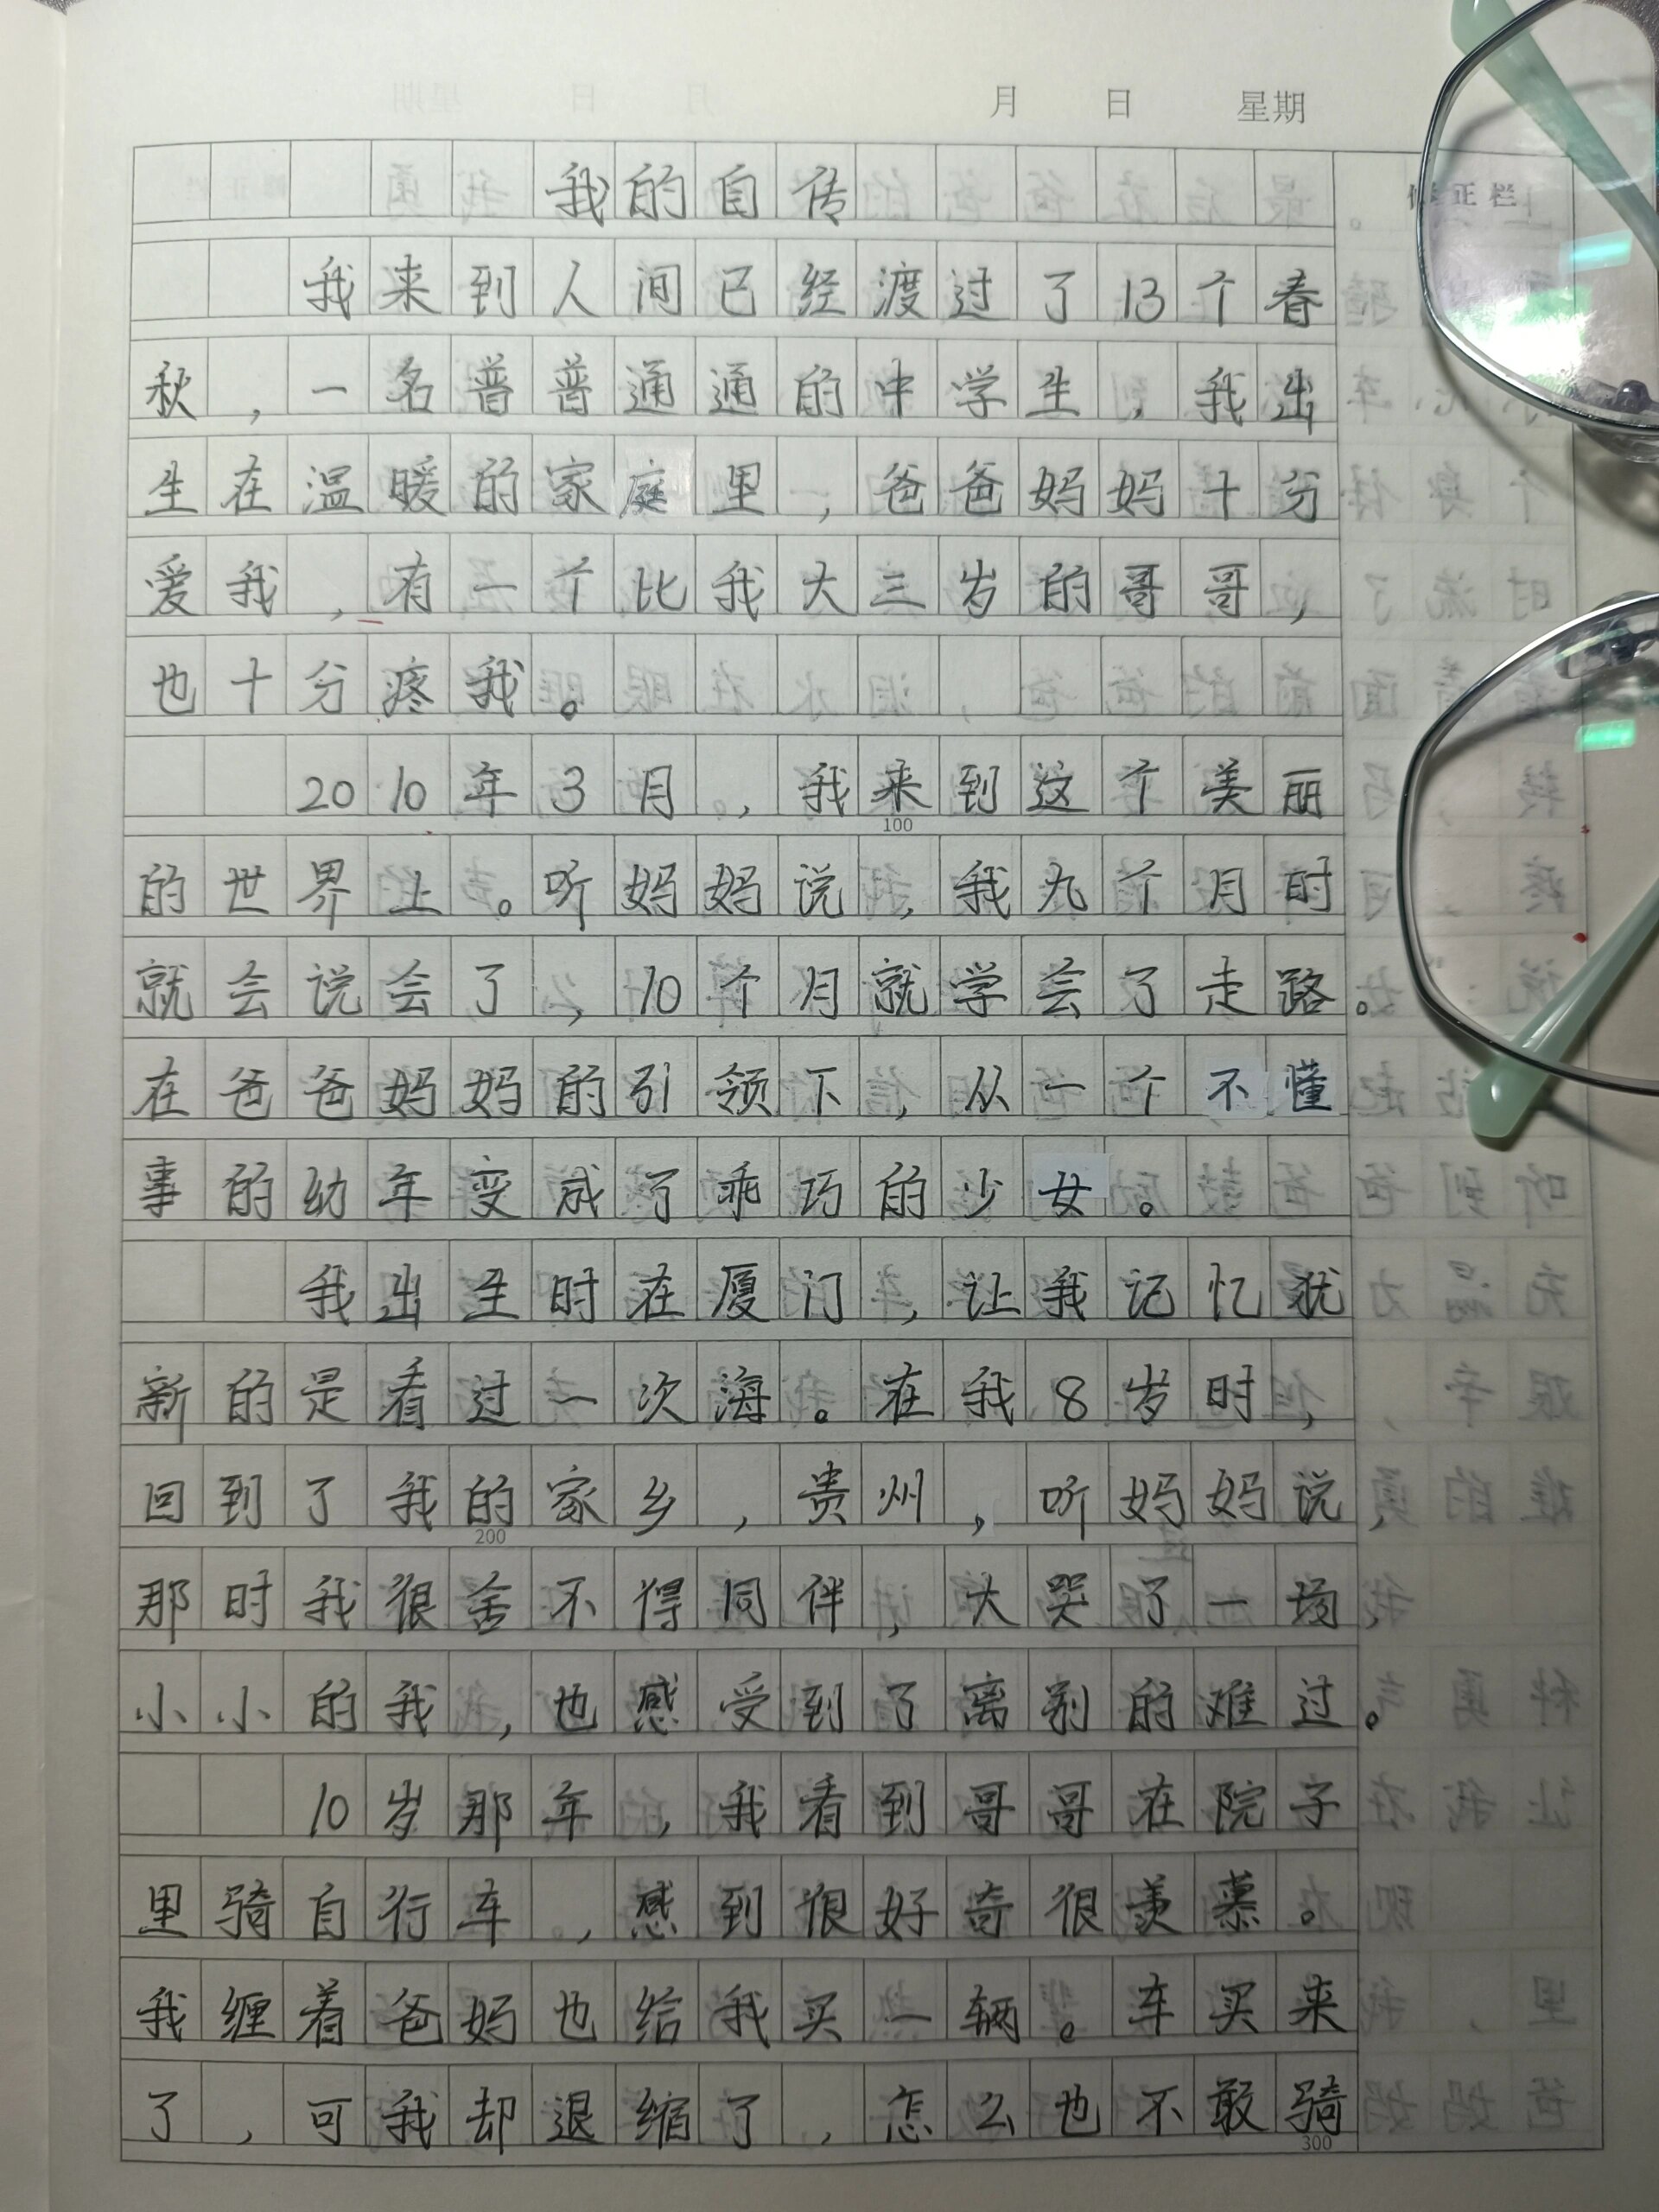 月 日 星期
修正栏
我的自传
我来到人间已经渡过了13个春
秋，一名普普通通的中学生，我出
生在温暖的家庭里，爸爸妈妈十分
爱我，有一个比我大三岁的哥哥，
也十分疼我。
2010年3月，我来到这个美丽
100
的世界上。听妈妈说，我九个月时
就会说会了，10个月就学会了走路。
在爸爸妈妈的引领下，从一个不懂
事的幼年变成了乖巧的少女。
我出生时在厦门，让我记忆犹
新的是看过一次海。在我8岁时，
回到了我的家乡，贵州，听妈妈说，
200
那时我很舍不得同伴，大哭了一场，
小小的我，也感受到了离别的难过。
10岁那年，我看到哥哥在院子
里骑自行车，感到很好奇很羡慕。
我缠着爸妈也给我买一辆。车买来
了，可我却退缩了，怎么也不敢骑
300